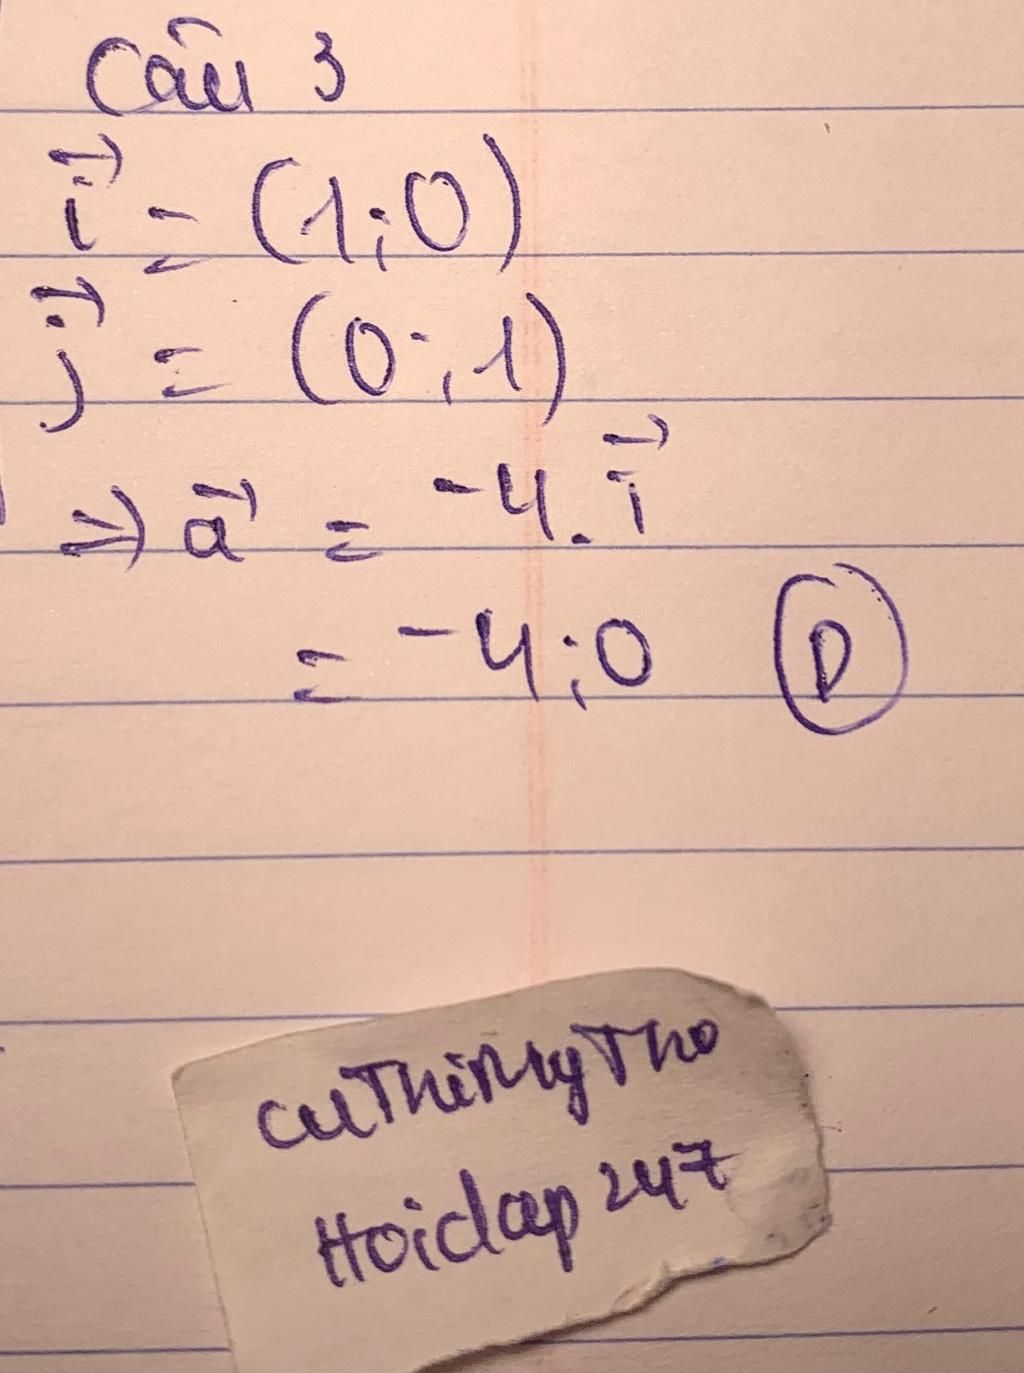 Câu 3
i⃗ = (1;0)
j⃗ = (0;1)
=> a⃗ = -4.i⃗
= -4;0 D
CuThiMyTho
Hoidap247